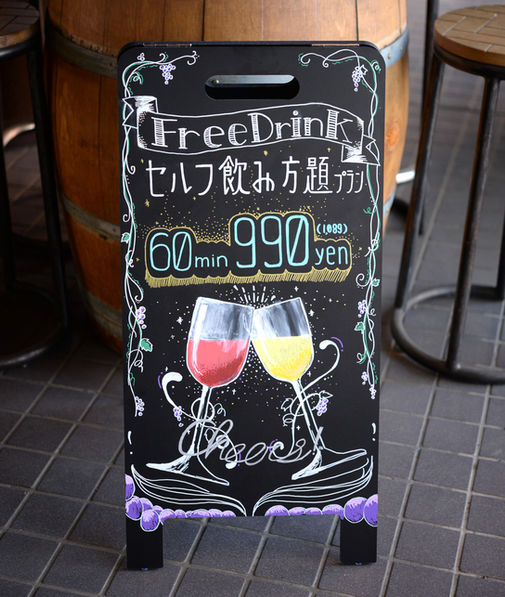 FreeDrink
セルフ飲み方題プラン
60min 990yen
(1,089)
Cheers!